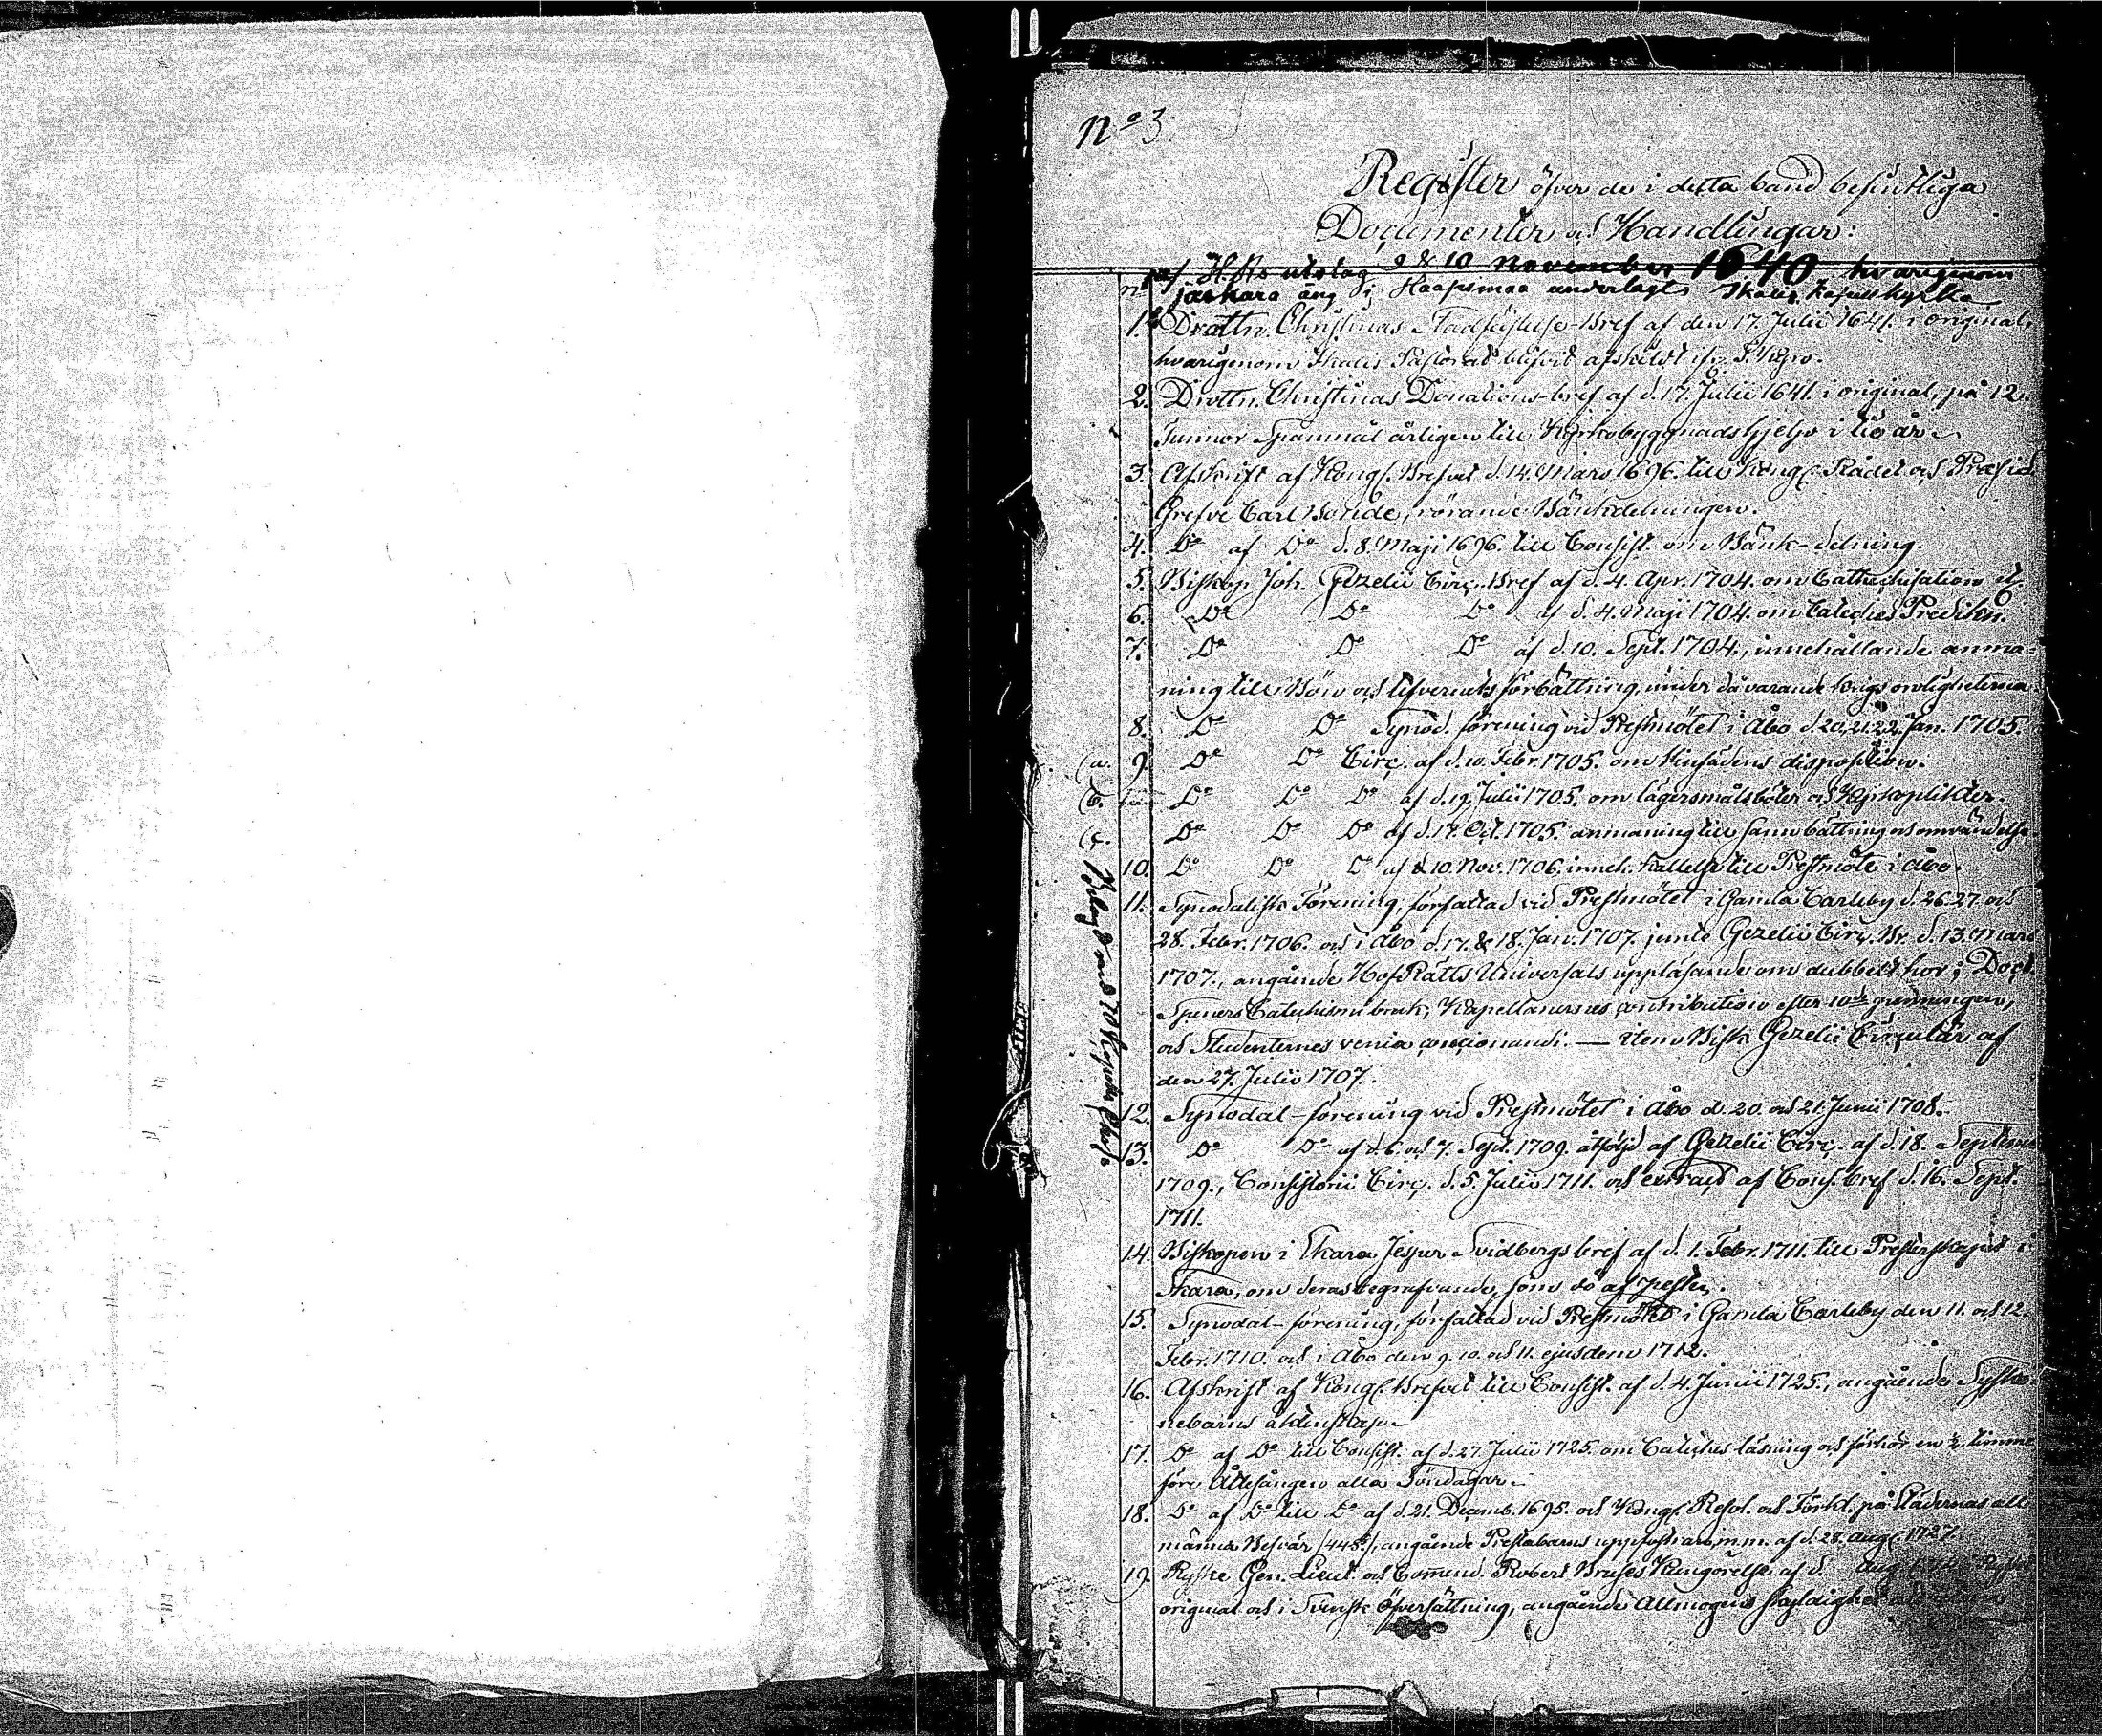 No 3.
Register öfver de i detta band befintliga
Documenter och Handlingar:
af H. Rs utslag 9 & 10 november 1640 hvarigenom
Jäskara äng i Haapimaa underlagts Ikalis kapellkyrka
1. Drottn. Christinas Stadfästelse-Bref af den 17. Julii 1641. i original,
hvarigenom Ikalis Pastorat blifvit afskildt ifr.
2. Drottn. Christinas Donations-bref af d. 17. Julii 1641. i original, på 12.
Tunnor Spanmål årligen till Kyrkobyggnadshjelp i tio år.
3. Afskrift af Kongl. Brefvet d. 14. Mars 1696. till Kongl. Rådet och Præsid.
Grefve Carl Bonde, rörande Bänkdelningen.
4. Do af Do d. 8. Maji 1696. till Consist. om Bänk-delning.
5. Biskop Joh. Gezelii Circ. Bref af d. 4. Apr. 1704. om Cathechisation
6. Do Do Do af d. 4. Maji 1704. om Cateches Predikn.
7. Do Do Do af d. 10. Sept. 1704., innehållande anma-
ning till Bön och lefvernets förbättring, under då varande krigs oroligheterna.
8. Do Do Synod. förening vid Prestmötet i Åbo d. 20. 21. 22. Jan. 1705.
(a. 9. Do Do Circ. af d. 10. Febr. 1705. om dispositiōn.
(b. Do Do Do af d. 19. Julii 1705. om lägersmålsböter och
(c. Do Do Do af d. 17. Oct. 1705. anmaning till sann bättring och omvändelse
10. Do Do Do af d. 10. Nov. 1706. inneh. kallelse till Prestmöte i Åbo
11. Synodalisk Förening, författad vid Prestmötet i Gamla Carleby d. 26. 27. och
28. Febr. 1706. och i Åbo d. 17. & 18. Jan. 1707. jemte Gezelii Circ. Br. d. 13. Mars
1707., angående Hof Rätts Universals uppläsande om dubbelt hor; Doct.
Speners Catechismi bruk; Kapellanernes contribution efter
och Studenternes venia concionandi. — item Bisk. Gezelii Circulär af
den 27. Julii 1707.
12. Synodal-förening vid Prestmötet i Åbo d. 20. och 21. Junii 1708.
13. Do Do af d. 6. och 7. Sept. 1709. åtföljd af Gezelii Circ. af d. 18. Septemb.
1709., Consistorii Circ. d. 5. Julii 1711. och extract af Cons. bref d. 16. Sept.
1711.
14. Biskopen i Skara Jesper Svidbergs bref af d. 1. Febr. 1711. till Presterskapet i
Skara, om deras begrafvande, som dö af pesten.
15. Synodal-förening, författad vid Prestmötet i Gamla Carleby den 11. och 12.
Febr. 1710. och i Åbo den 9. 10. och 11. ejusdem 1712.
16. Afskrift af Kongl. Brefvet till Consist. af d. 4. Junii 1725., angående Sysko-
nebarns äktenskap.
17. Do af Do till Consist. af d. 27. Julii 1725. om Cateches läsning och förhör en ½ timme
före Ottesången alla Söndagar.
18. Do af Do till Do af d. 21. Decemb. 1695. och Kongl. Resol. och Förkl. på Städernas all-
männa Besvär /44§/, angående Prestabarns uppfostran m.m. af d. 28. Aug. 1727.
19. Ryske Gen. Lieut. och Commend. Robert Bruces Kungörelse af d. Aug.
original och i Svensk öfversättning, angående Allmogens skyldighet